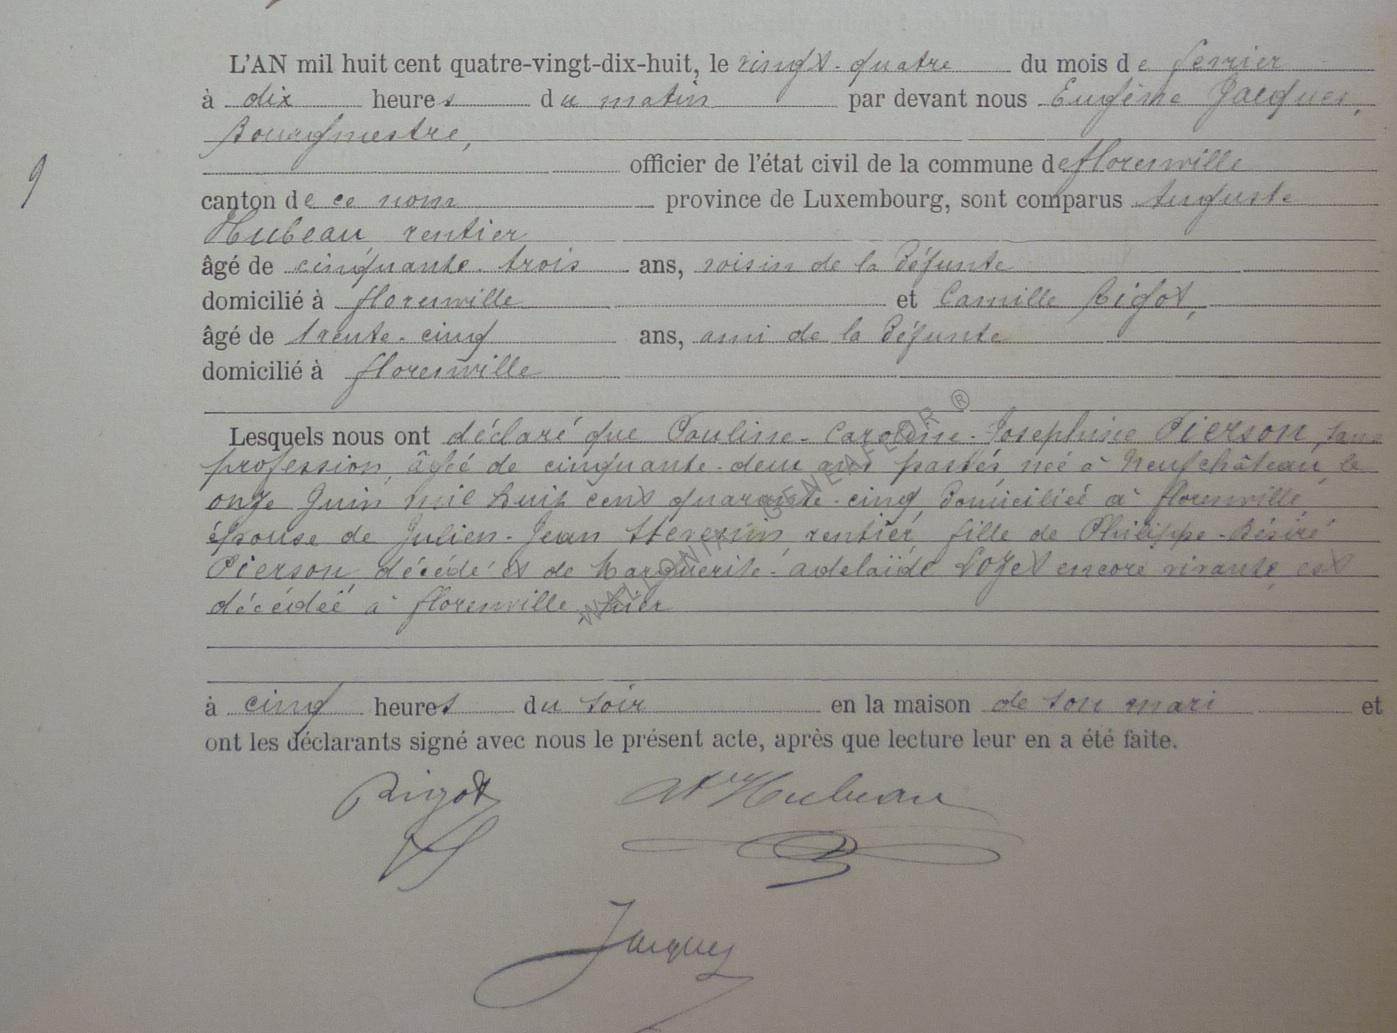 L'AN mil huit cent quatre-vingt-dix-huit, le vingt-quatre du mois de février
à dix heures du matin par devant nous Eugène Jacques,
Bourgmestre,
officier de l'état civil de la commune de florenville
9
canton de ce nom province de Luxembourg, sont comparus Auguste
Hubeau, rentier,
âgé de cinquante-trois ans, voisin de la Défunte
domicilié à florenville et Camille Rigot,
âgé de trente-cinq ans, ami de la Défunte
domicilié à florenville
Lesquels nous ont déclaré que Pauline-Caroline-Josephine Pierson, sans
profession, âgée de cinquante-deux ans passés, née à Neufchâteau, le
onze Juin mil huit cent quarante-cinq, Domiciliée à florenville,
épouse de Julien-Jean rentier, fille de Philippe-Désiré
Pierson, décédé et de Marguerite-adelaïde Lozet encore vivante, est
décédée à florenville hier
à cinq heures du soir en la maison de son mari et
ont les déclarants signé avec nous le présent acte, après que lecture leur en a été faite.
Rigot Hubeau
Jacques
WALLONIA GENEAFLOR ®